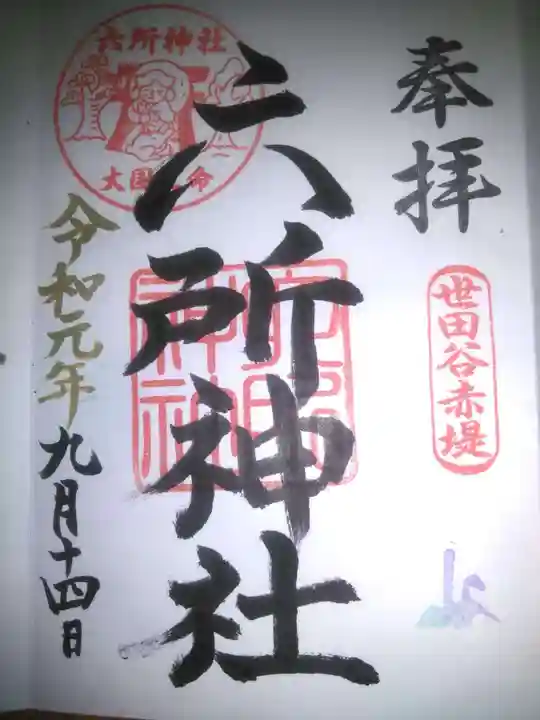 奉拝
世田谷赤堤
六所神社
六所神社
六所神社
令和元年九月十四日